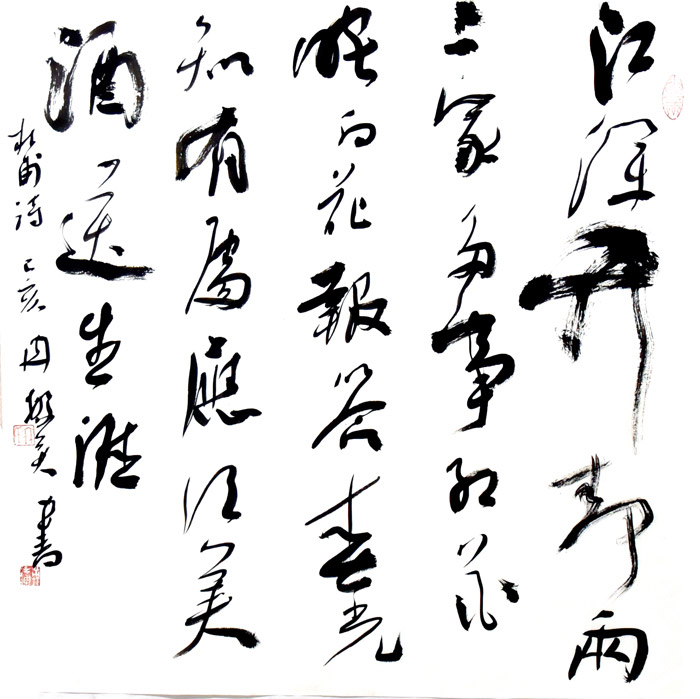 江深竹静兩
三家多事紅花
映白花報答春光
知有處應須美
酒送生涯
杜甫詩 己亥 美書